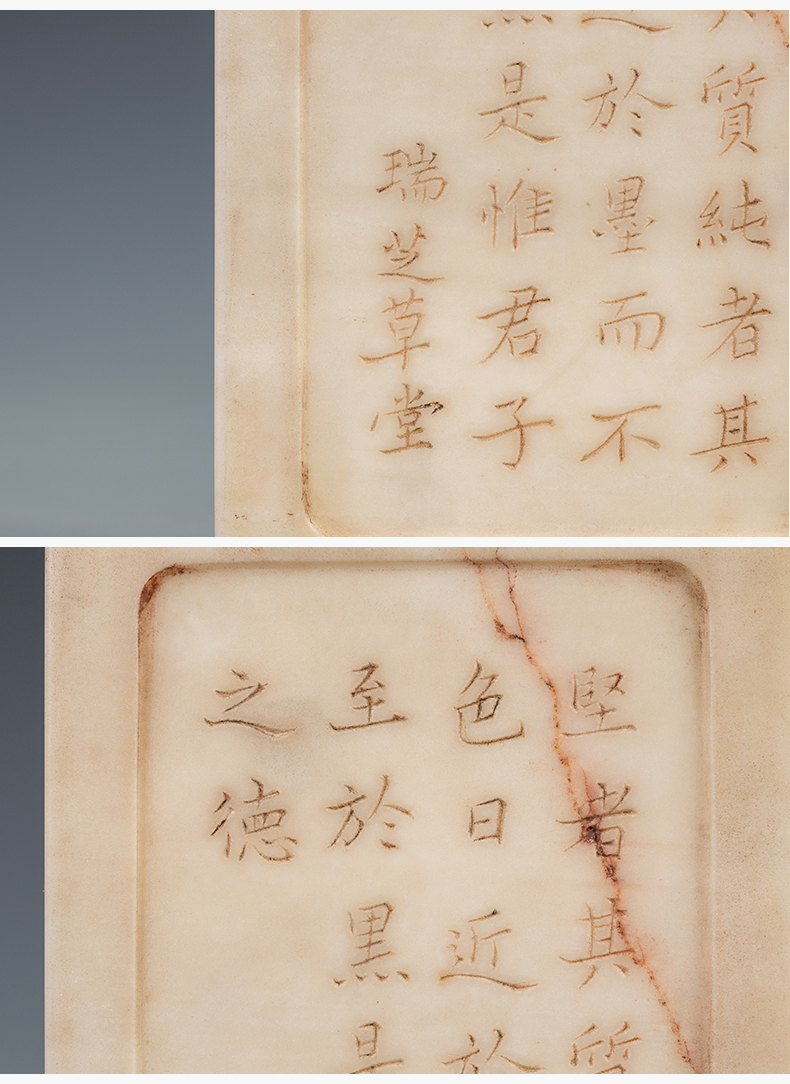 質純者其
於墨而不
是惟君子
瑞芝草堂
堅者其質
色日近於
至於黑是
之德